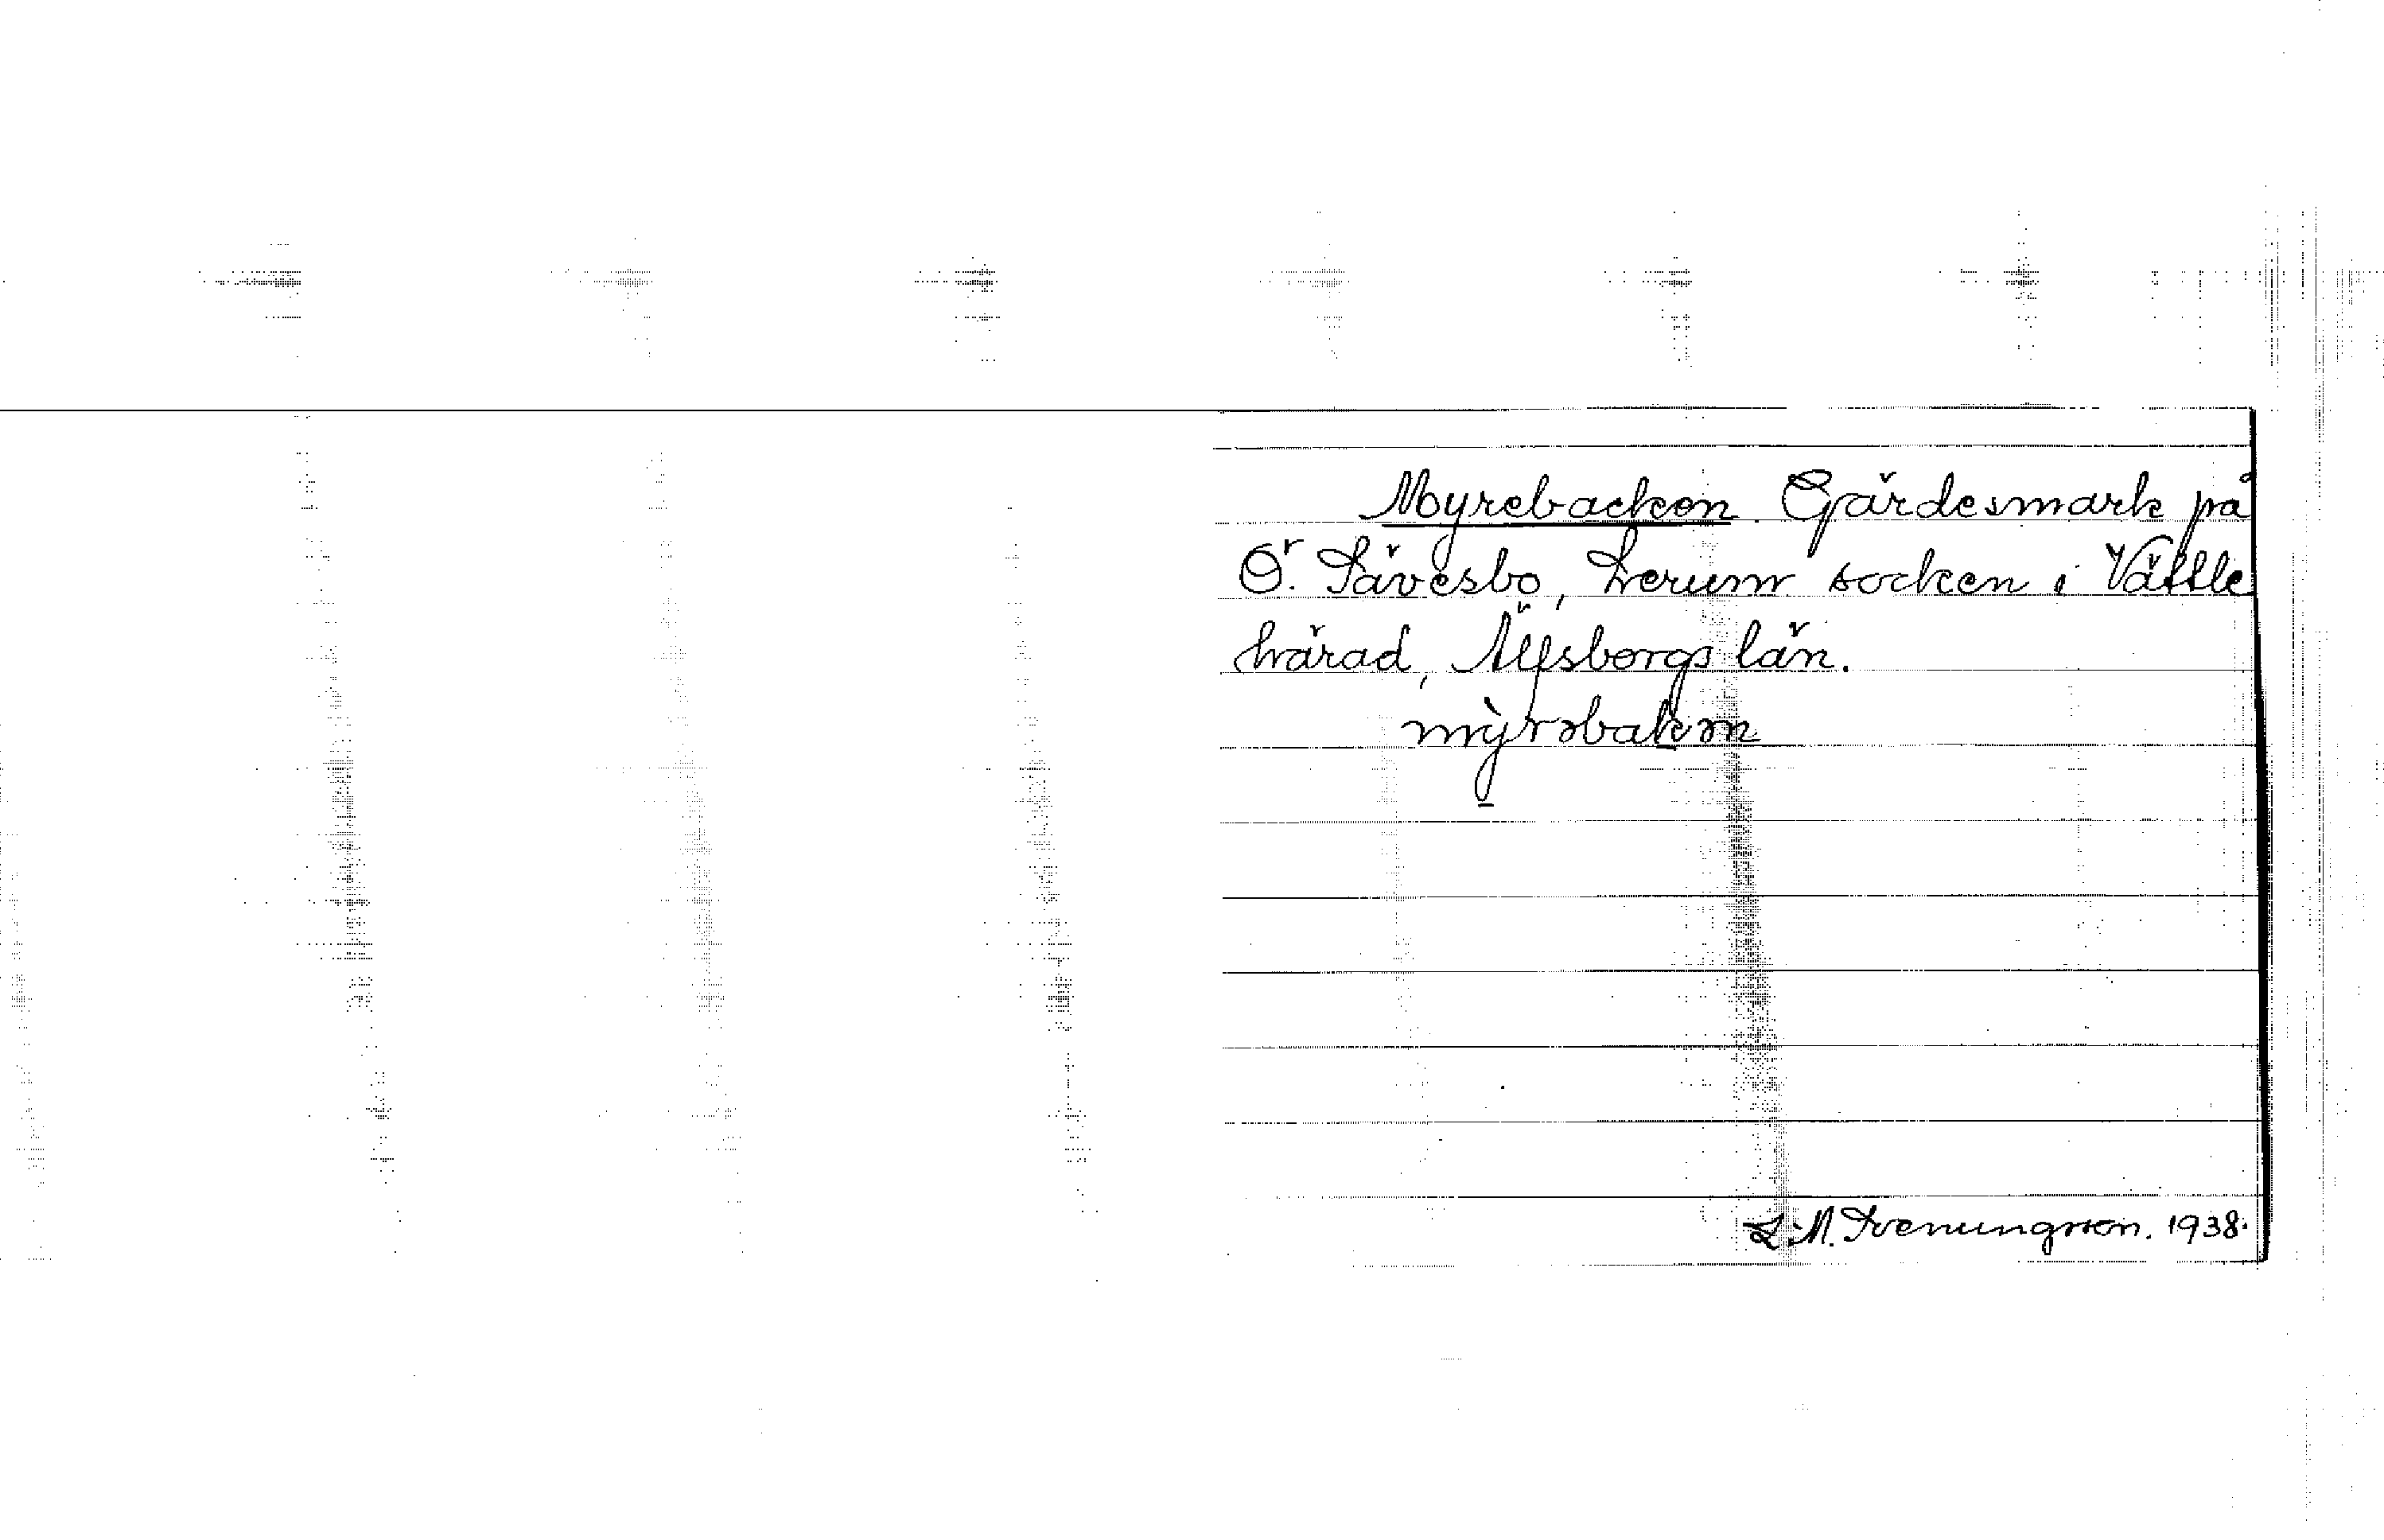 Myrebacken. Gärdesmark på
Ö. Sävesbo, Lerum socken i Vättle
härad, Älfsborgs län.
mỳrəbakən
L.M. Svenungsson. 1938.